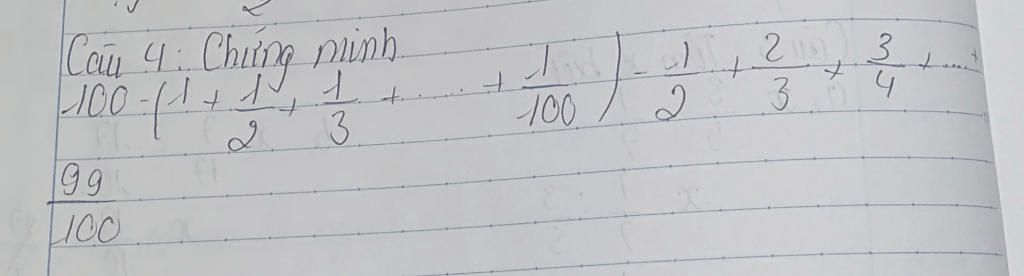 Câu 4: Chứng minh
100 - (1 + 1/2 + 1/3 + .... + 1/100) - 1/2 + 2/3 + 3/4 + ....+
99/100